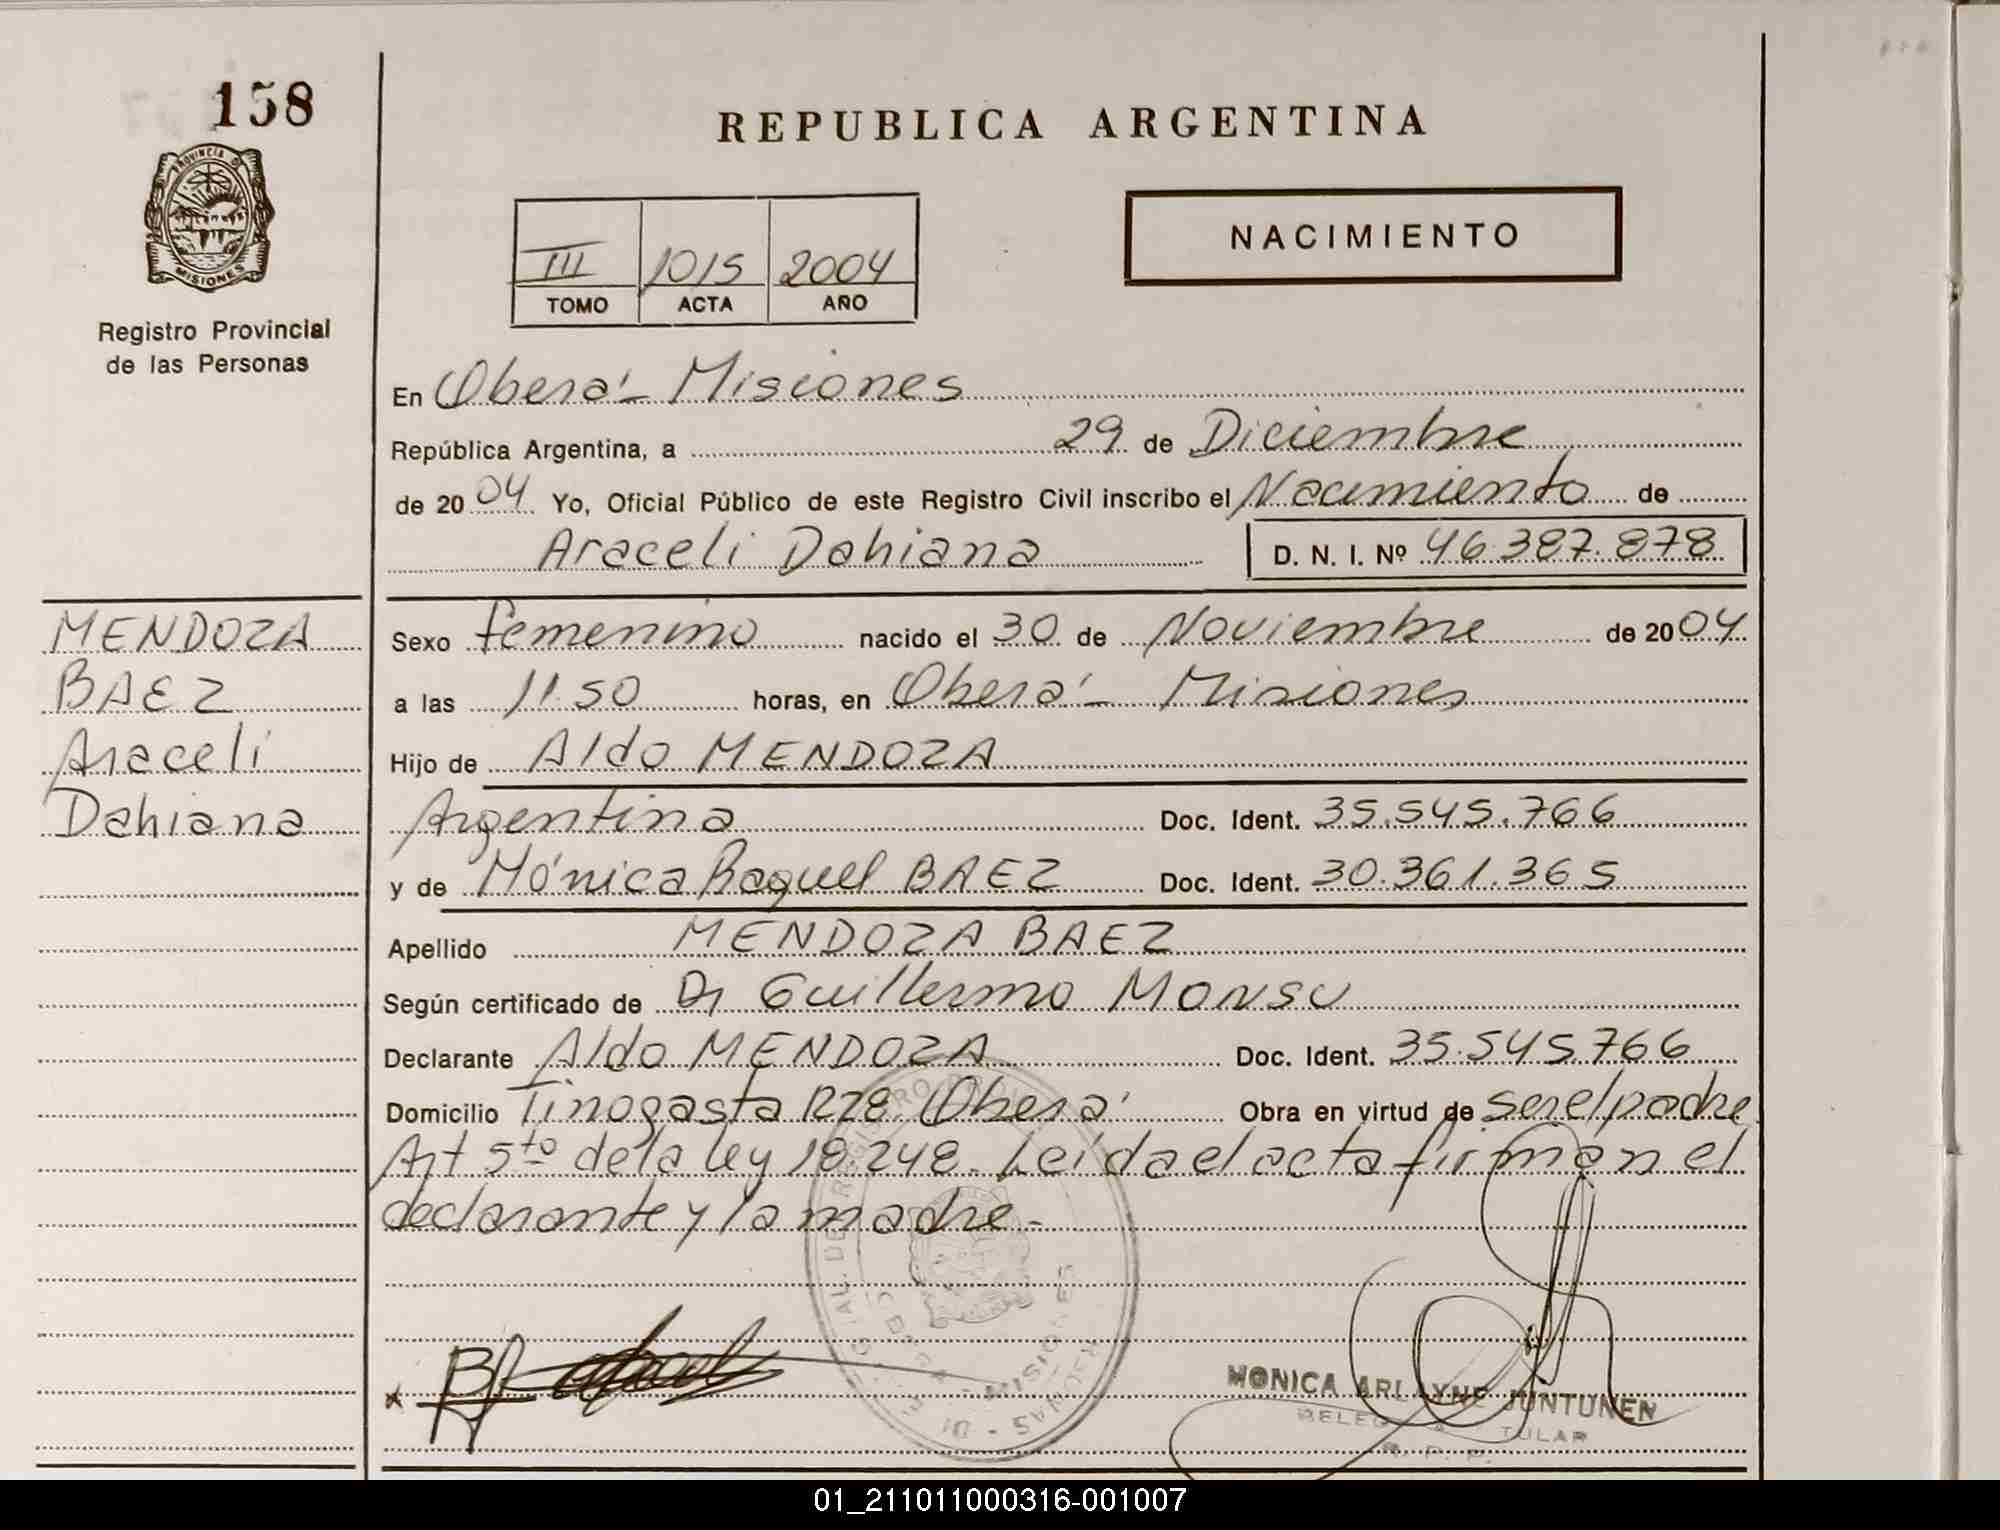 158
PROVINCIA DE
MISIONES
Registro Provincial
de las Personas
REPUBLICA ARGENTINA
NACIMIENTO
III 1015 2004
TOMO ACTA AÑO
En Oberá - Misiones
República Argentina, a 29 de Diciembre
de 2004 Yo, Oficial Público de este Registro Civil inscribo el Nacimiento de
Araceli Dahiana D. N. I. Nº 46.387.878
MENDOZA
BAEZ
Araceli
Dahiana
Sexo femenino nacido el 30 de Noviembre de 2004
a las 11.50 horas, en Oberá - Misiones
Hijo de Aldo MENDOZA
Argentina Doc. Ident. 35.545.766
y de Mónica Raquel BAEZ Doc. Ident. 30.361.365
Apellido MENDOZA BAEZ
Según certificado de Dr Guillermo MONSU
Declarante Aldo MENDOZA Doc. Ident. 35.545.766
Domicilio Tinogasta 1278. Oberá Obra en virtud de ser el padre
Art 5to de la ley 18.248. Leída el acta firman el
declarante y la madre.-
MONICA ARLAYNE JUNTUNEN
01_211011000316-001007